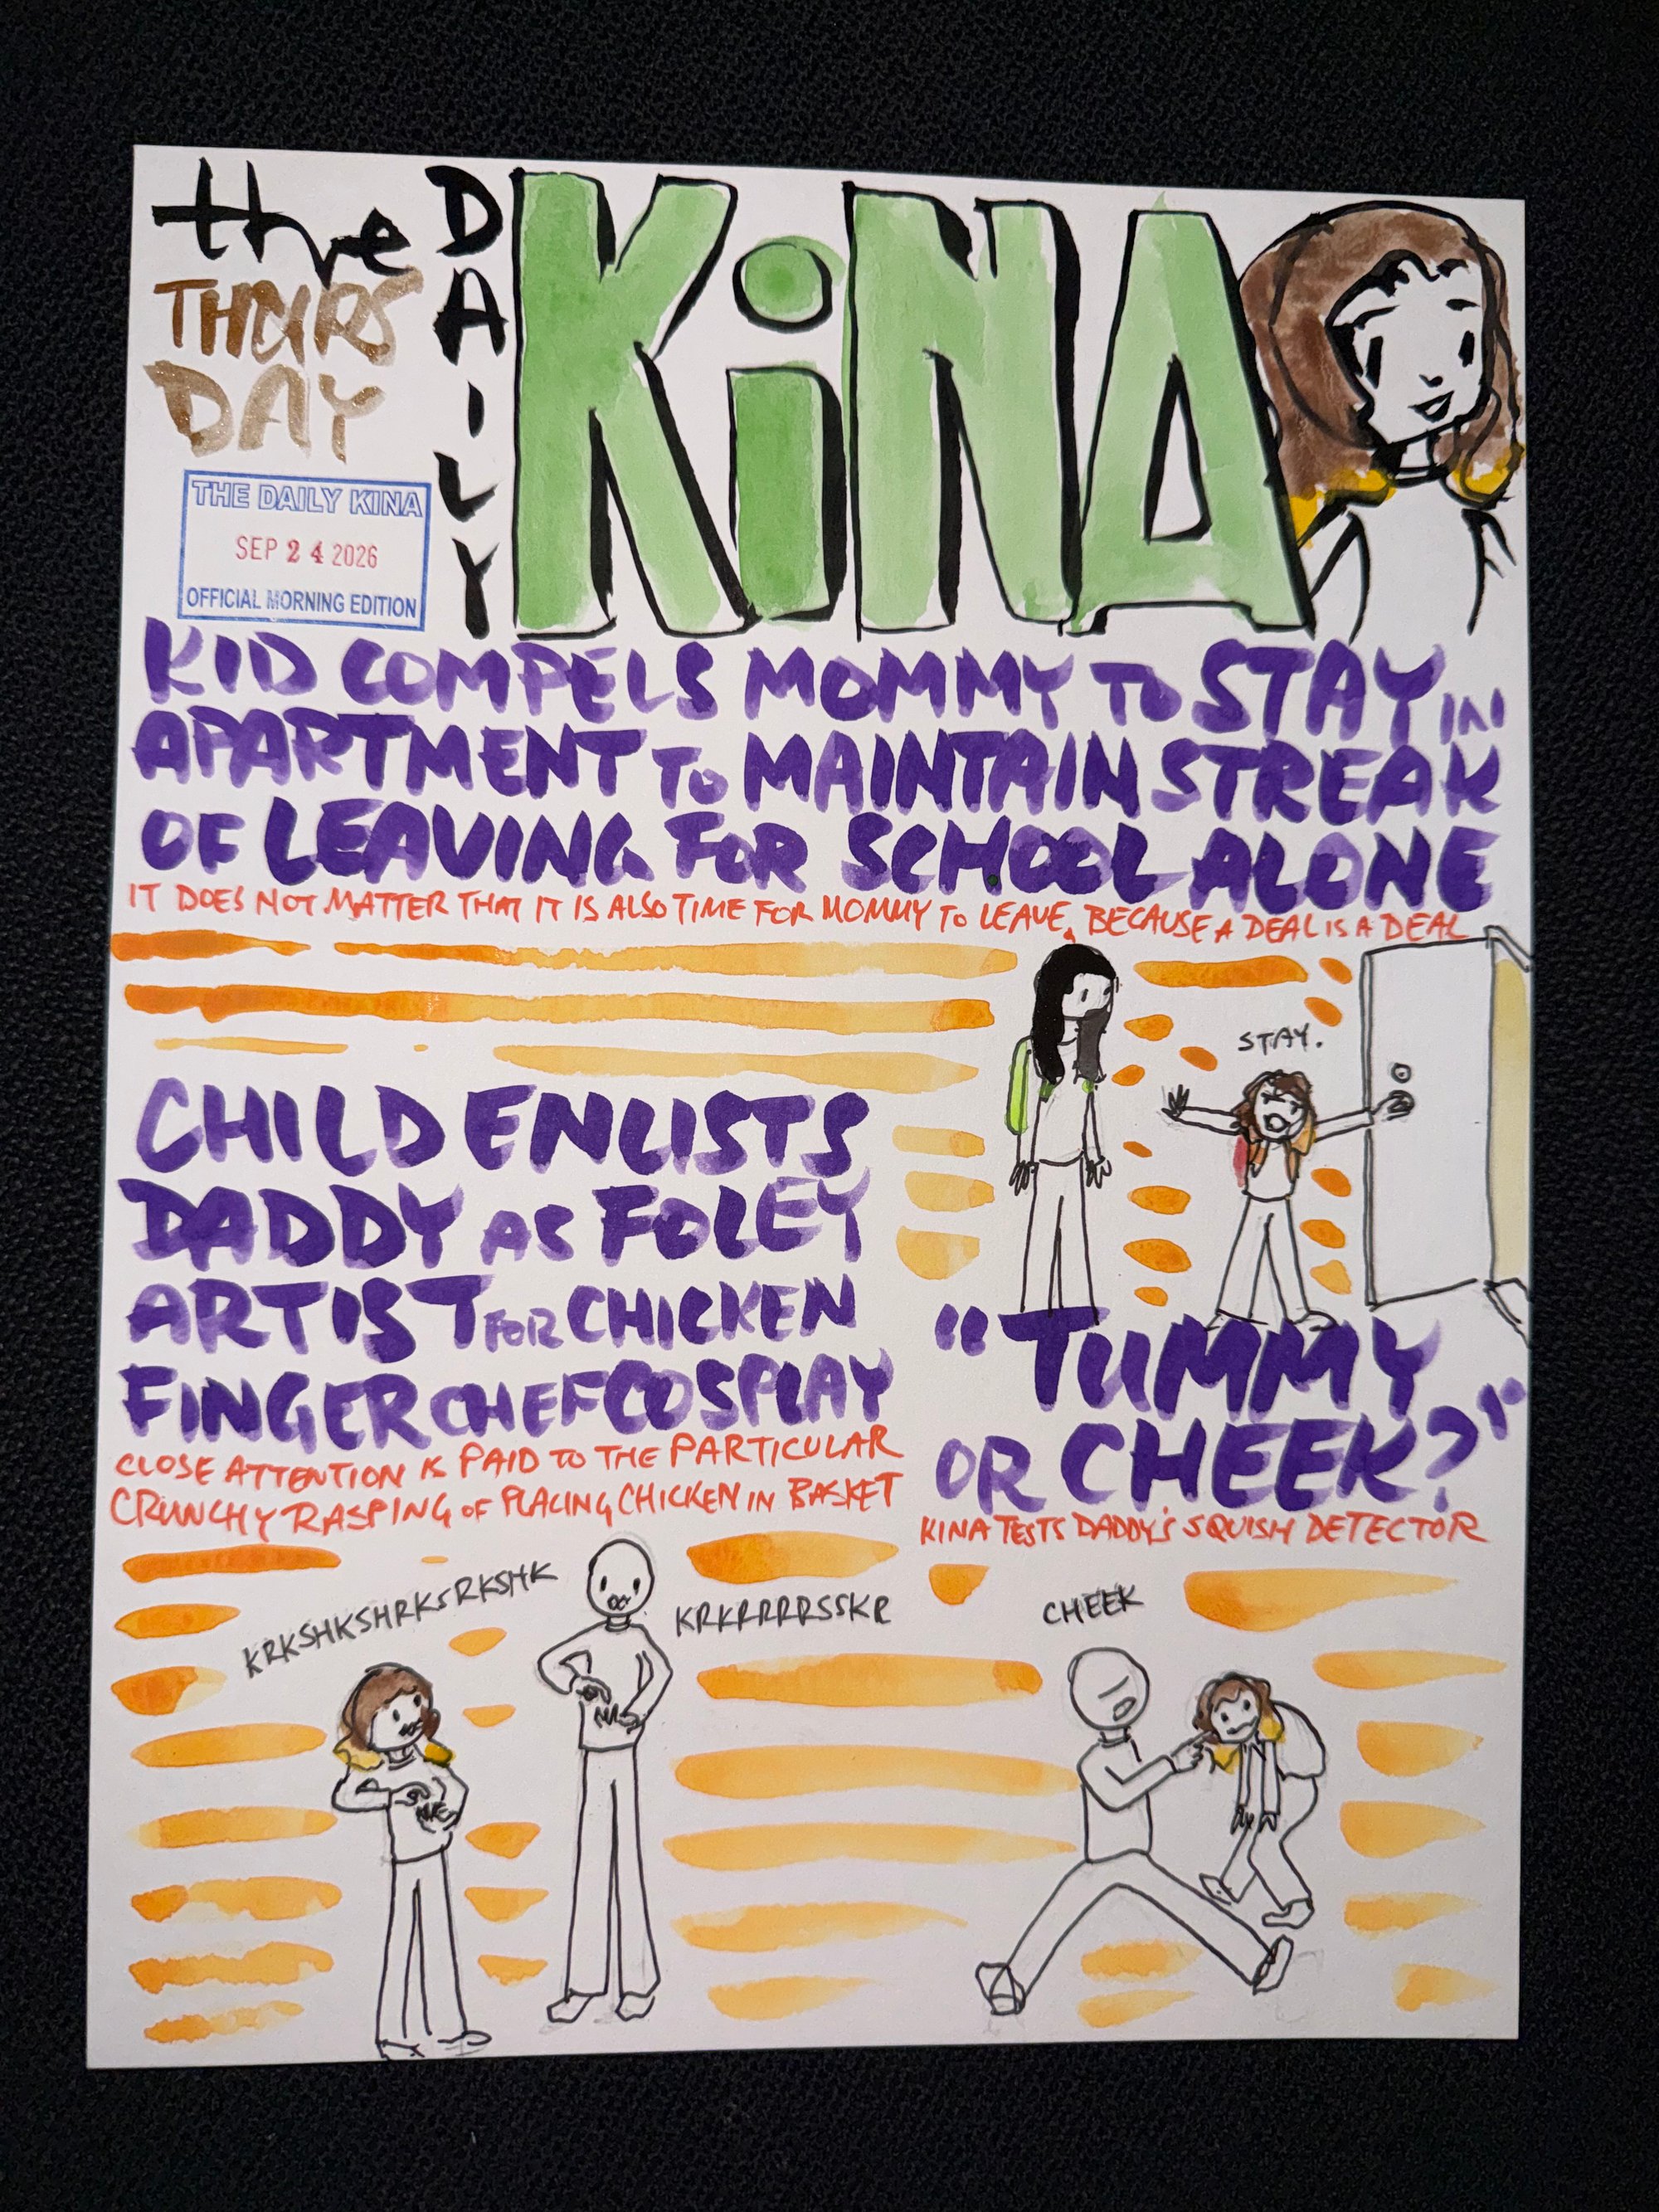 the
THURS
DAY
DAILY
KiNA
THE DAILY KINA
SEP 24 2026
OFFICIAL MORNING EDITION
KID COMPELS MOMMY TO STAY IN
APARTMENT TO MAINTAIN STREAK
OF LEAVING FOR SCHOOL ALONE
IT DOES NOT MATTER THAT IT IS ALSO TIME FOR MOMMY TO LEAVE, BECAUSE A DEAL IS A DEAL
STAY.
CHILD ENLISTS
DADDY AS FOLEY
ARTIST FOR CHICKEN
FINGER CHEF COSPLAY
CLOSE ATTENTION IS PAID TO THE PARTICULAR
CRUNCHY RASPING OF PLACING CHICKEN IN BASKET
KRKSHKSHRKSRKSHK
KRKRRRRSSKR
"TUMMY
OR CHEEK?"
KINA TESTS DADDY'S SQUISH DETECTOR
CHEEK